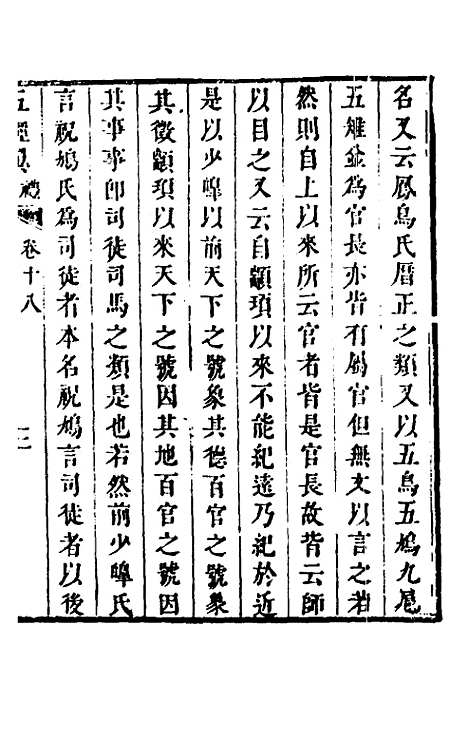 名又云鳳鳥氏曆正之類又以五鳥五鳩九扈
五雉並為官長亦皆有屬官但無文以言之若
然則自上以來所云官者皆是官長故皆云師
以目之又云自顓頊以來不能紀遠乃紀於近
是以少皞以前天下之號象其德百官之號象
其徵顓頊以來天下之號因其地百官之號因
其事事即司徒司馬之類是也若然前少皞氏
言祝鳩氏為司徒者本名祝鳩言司徒者以後
五經 禮 卷十八